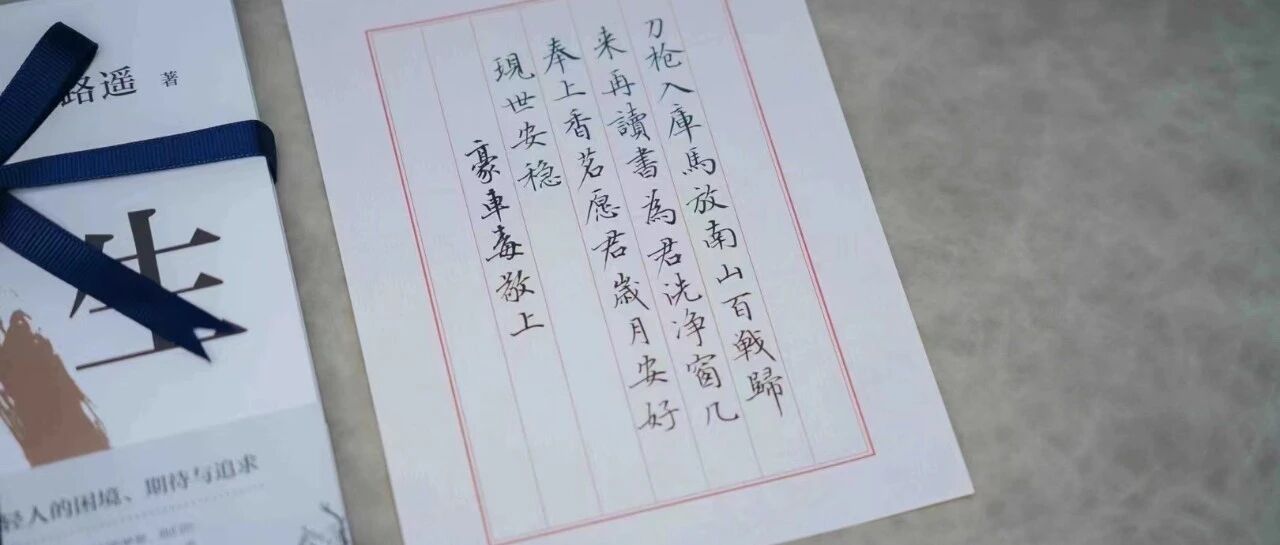 刀枪入庫馬放南山百戦歸
来再讀書為君洗净窗几
奉上香茗愿君歲月安好
現世安稳
豪車毒敬上
路遥 著
生
轻人的困境、期待与追求